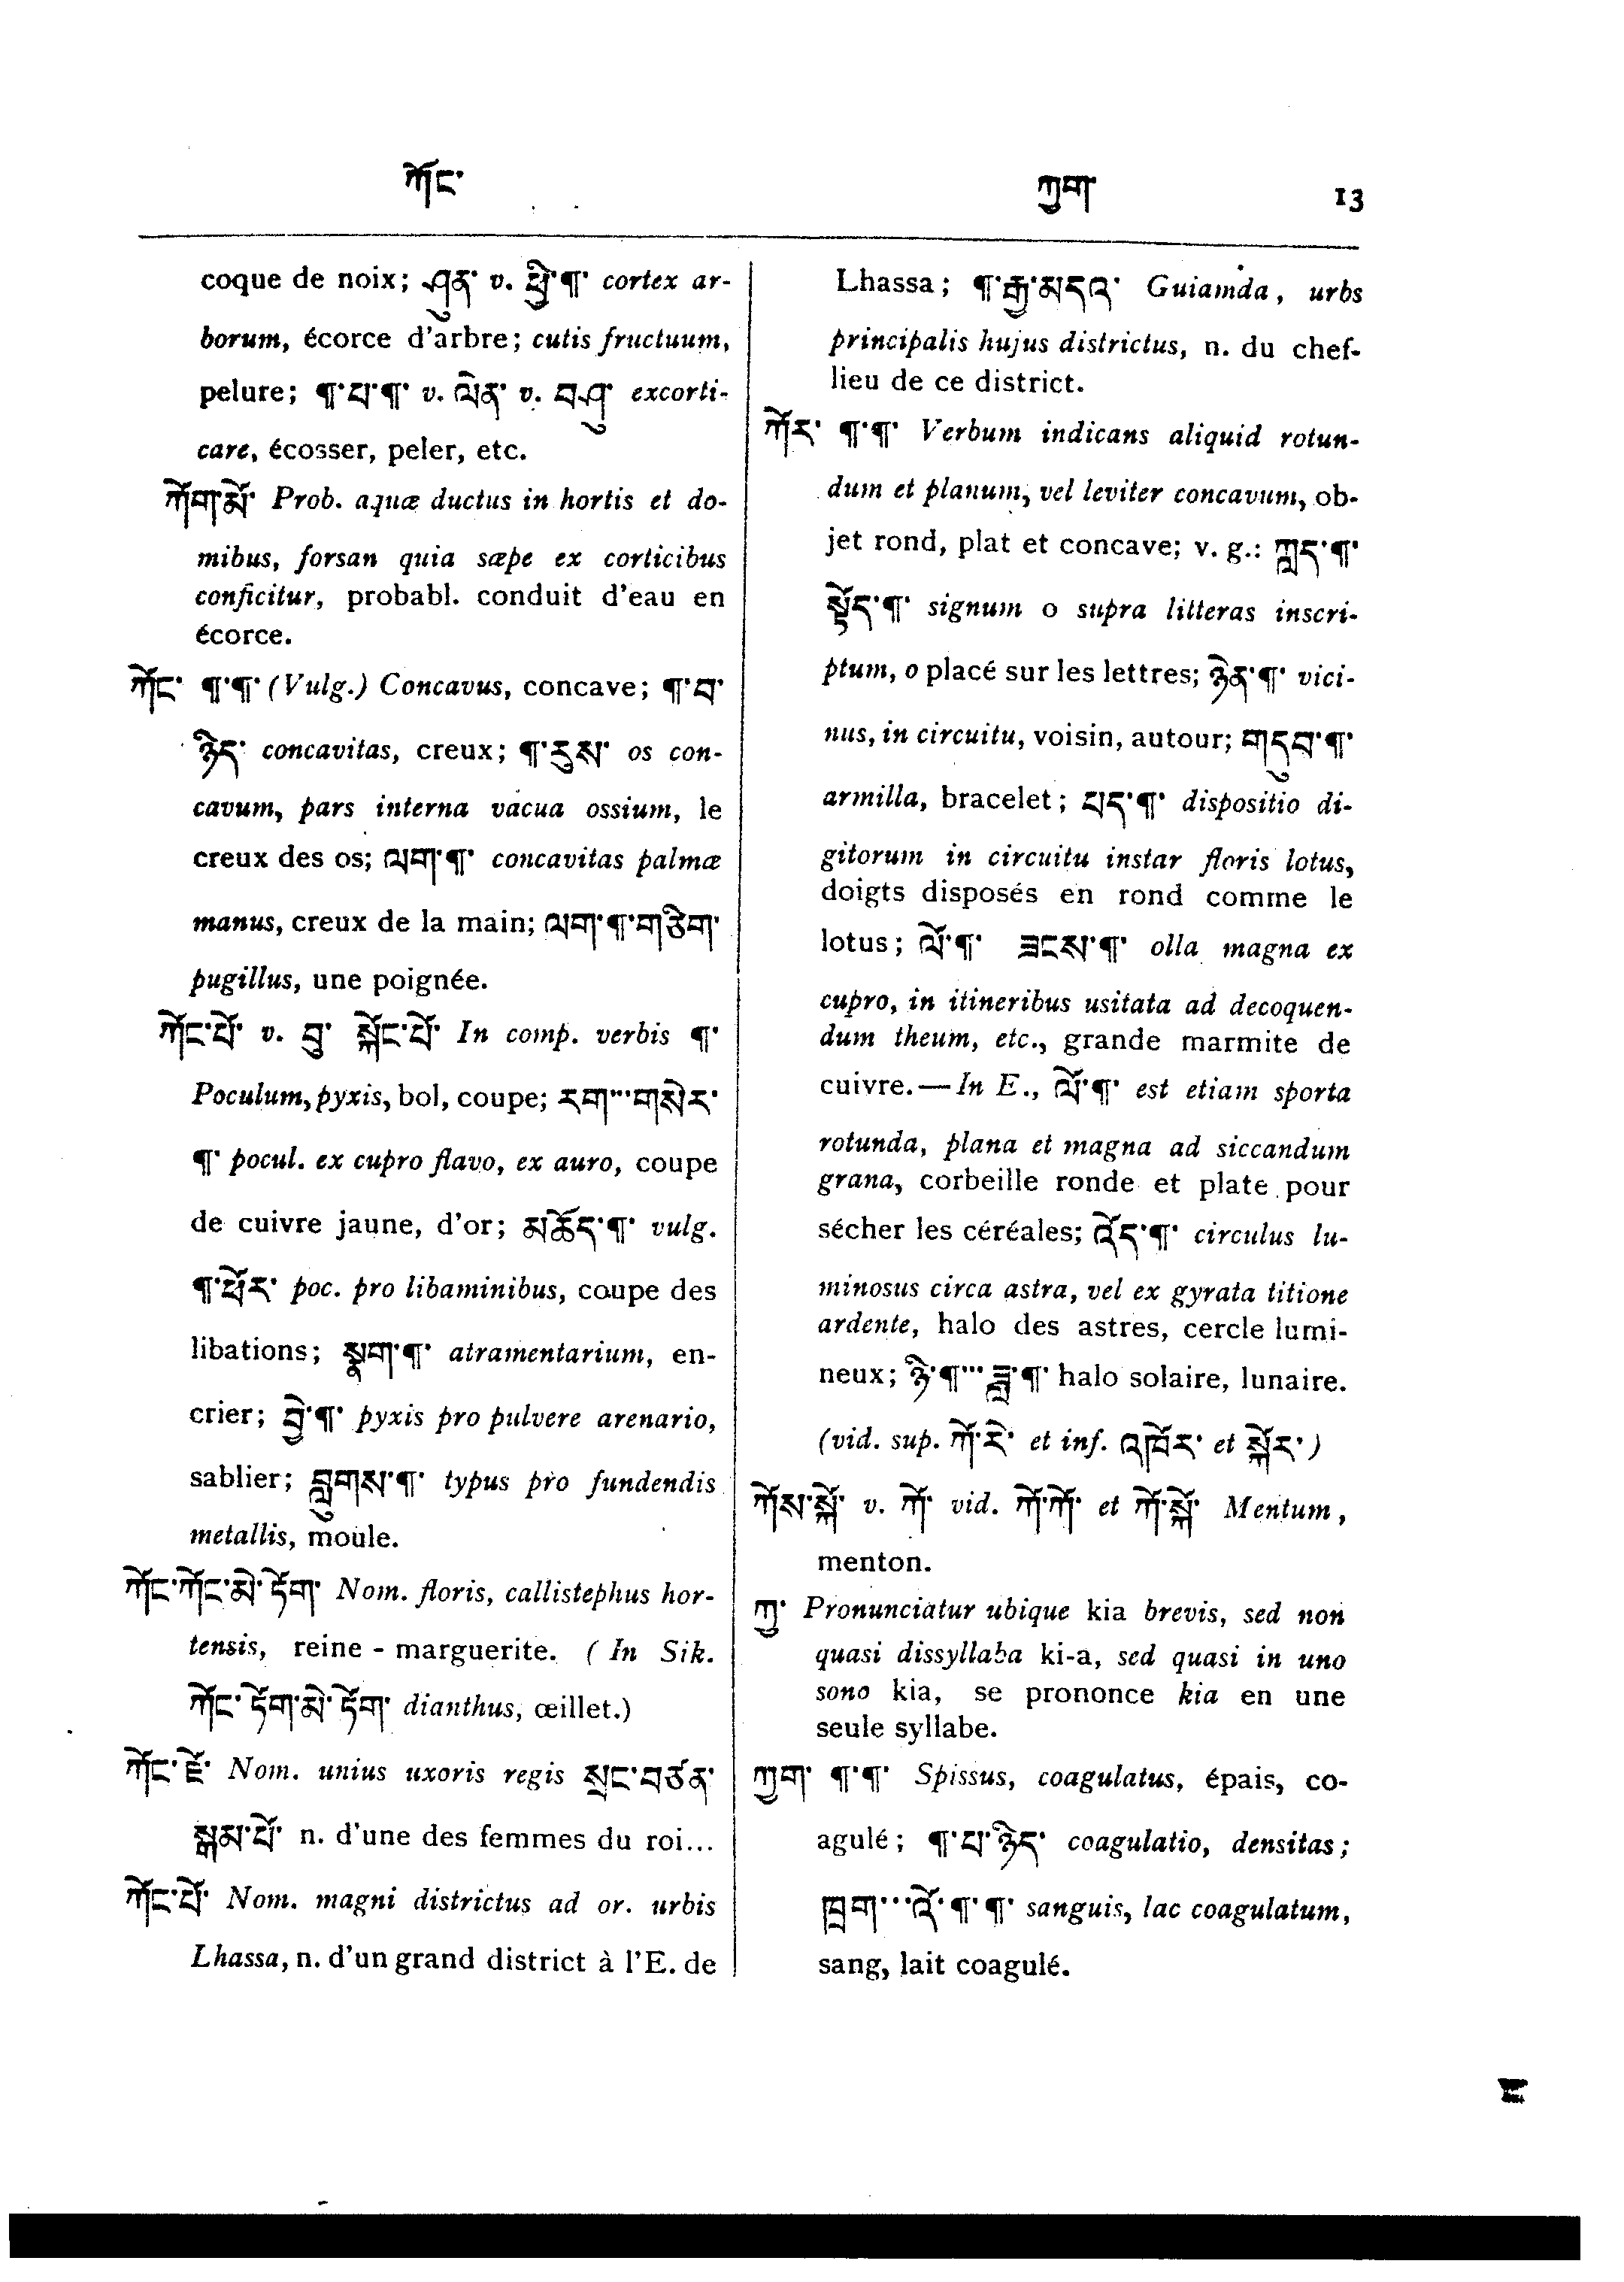 ཀོང་
ཀྱག
13
coque de noix; ཤུན་ v. ཕྱི་¶་ cortex ar-
borum, écorce d'arbre; cutis fructuum,
pelure; ¶་པ་¶་ v. ལེན་ v. བཤུ་ excorti-
care, écosser, peler, etc.
ཀོག་མོ་ Prob. aquæ ductus in hortis et do-
mibus, forsan quia sæpe ex corticibus
conficitur, probabl. conduit d'eau en
écorce.
ཀོང་ ¶་¶་ (Vulg.) Concavus, concave; ¶་བ་
ཉིད་ concavitas, creux; ¶་རུས་ os con-
cavum, pars interna vacua ossium, le
creux des os; ལག་¶་ concavitas palmæ
manus, creux de la main; ལག་¶་གཅིག་
pugillus, une poignée.
ཀོང་པོ་ v. བུ་ སྐོང་པོ་ In comp. verbis ¶་
Poculum, pyxis, bol, coupe; རག་··གསེར་
¶་ pocul. ex cupro flavo, ex auro, coupe
de cuivre jaune, d'or; མཆོད་¶་ vulg.
¶་ཕོར་ poc. pro libaminibus, coupe des
libations; སྣག་¶་ atramentarium, en-
crier; བྱེ་¶་ pyxis pro pulvere arenario,
sablier; བླུགས་¶་ typus pro fundendis
metallis, moule.
ཀོང་ཀོང་མེ་ཏོག་ Nom. floris, callistephus hor-
tensis, reine - marguerite. ( In Sik.
ཀོང་ཏོག་མེ་ཏོག་ dianthus, œillet.)
ཀོང་ཇོ་ Nom. unius uxoris regis སྲང་བཙན་
སྒམ་པོ་ n. d'une des femmes du roi...
ཀོང་པོ་ Nom. magni districtus ad or. urbis
Lhassa, n. d'un grand district à l'E. de
Lhassa; ¶་རྒྱ་མདའ་ Guiamda, urbs
principalis hujus districtus, n. du chef-
lieu de ce district.
ཀོར་ ¶་¶་ Verbum indicans aliquid rotun-
dum et planum, vel leviter concavum, ob-
jet rond, plat et concave; v. g.: ཀླད་¶་
སྟོད་¶་ signum o supra litteras inscri-
ptum, o placé sur les lettres; ཉེན་¶་ vici-
nus, in circuitu, voisin, autour; གདུབ་¶་
armilla, bracelet; པད་¶་ dispositio di-
gitorum in circuitu instar floris lotus,
doigts disposés en rond comme le
lotus; ལོ་¶་ ཟངས་¶་ olla magna ex
cupro, in itineribus usitata ad decoquen-
dum theum, etc., grande marmite de
cuivre.— In E., ལོ་¶་ est etiam sporta
rotunda, plana et magna ad siccandum
grana, corbeille ronde et plate pour
sécher les céréales; འོད་¶་ circulus lu-
minosus circa astra, vel ex gyrata titione
ardente, halo des astres, cercle lumi-
neux; ཉི་¶་·· ཟླ་¶་ halo solaire, lunaire.
(vid. sup. ཀོ་རེ་ et inf. འཁོར་ et སྐོར་)
ཀོས་སྐོ་ v. ཀོ་ vid. ཀོ་ཀོ་ et ཀོ་སྐོ་ Mentum,
menton.
ཀྱ་ Pronunciatur ubique kia brevis, sed non
quasi dissyllaba ki-a, sed quasi in uno
sono kia, se prononce kia en une
seule syllabe.
ཀྱག་ ¶་¶་ Spissus, coagulatus, épais, co-
agulé; ¶་པ་ཉིད་ coagulatio, densitas;
ཁྲག་··འོ་¶་¶་ sanguis, lac coagulatum,
sang, lait coagulé.